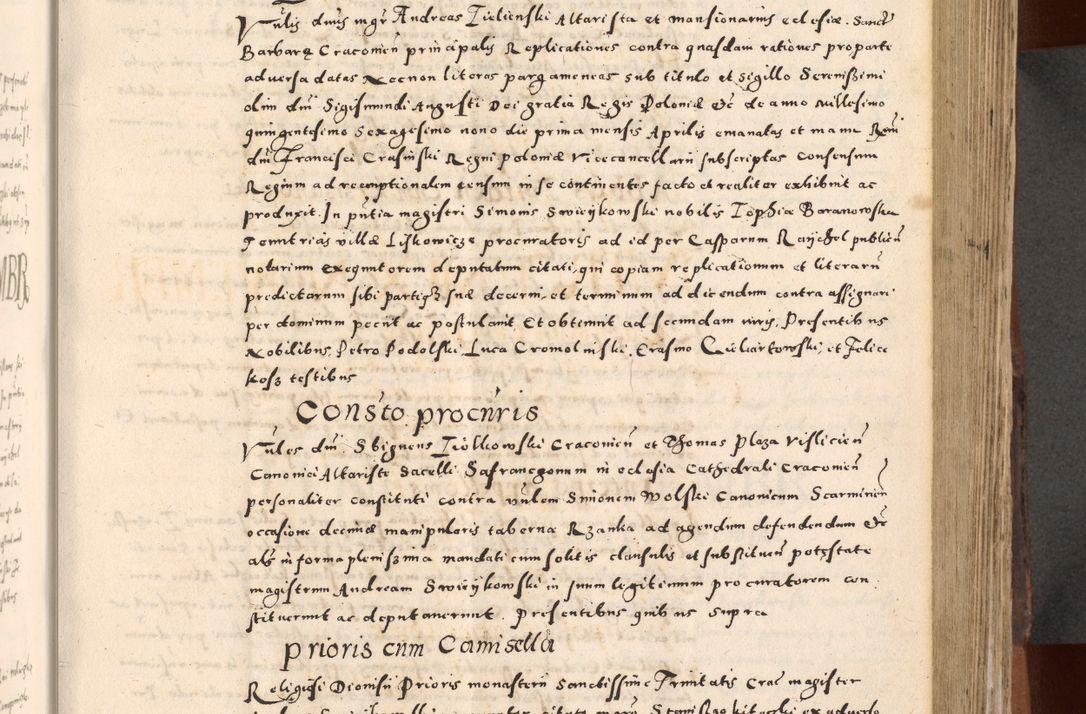 Vnlis dnus mgr Andreas Zielienski Altarista et mansionarius eclesiæ Sanctę
Barbarę Cracovien principalis Replicationes contra quasdam rationes pro parte
adversa datas Necnon literas pargameneas sub titulo et sigillo Serenissimi
olim dni Sigismundi Augusti Dei gratia Regis Poloniæ Etc de anno Millesimo
quingentesimo Sexagesimo nono die prima mensis Aprilis emanatas et manu Rmi
dni Francisci Crasinski Regni Poloniæ Vicecancellarii subscriptas Consensum
Regium ad reemptionalem censum in se continentes facto et realiter exhibuit ac
produxit. In pntia magistri Simonis Swieijkowski nobilis Zophiæ Baranowska
Tenutrias villæ Liskowicze procuratoris ad id per Casparum Raijchel publicu
notarium exequutorem deputatum citati, qui copiam replicationum et literaru
predictarum sibi partiq suæ decerni et terminum ad dicendum contra assignari
per dominum peciit ac postulavit Et obtenuit ad secundam iuris, Presentibus
Nobilibus, Petro Podolski, Luca Cromolniski, Erasmo et Felice
kosz testibus
Consto procuris
Vnles dni Sbigneus Ziolkowski Cracovien et Thomas Plaza Vislicien
Canonici Altariste Sacelli Safranczonum in eclesia Cathedrali Cracovien
personaliter constituti contra vnlem Simonem Wolski Canonicum Scarmirien
occasione decimæ manipularis taberna Rzanka ad agendum defendendum Etc
als in forma plenissima mandati cum solitis clausulis et substituen potestate
magistrum Andream Swieijkowski in suum legitimum procuratorem con
stituerunt ac deputaverunt. Presentibus quibus supra
Prioris cum Camisella
Religiosi Dionisii Prioris monasterii Sanctissime Trinitatis Crac magister